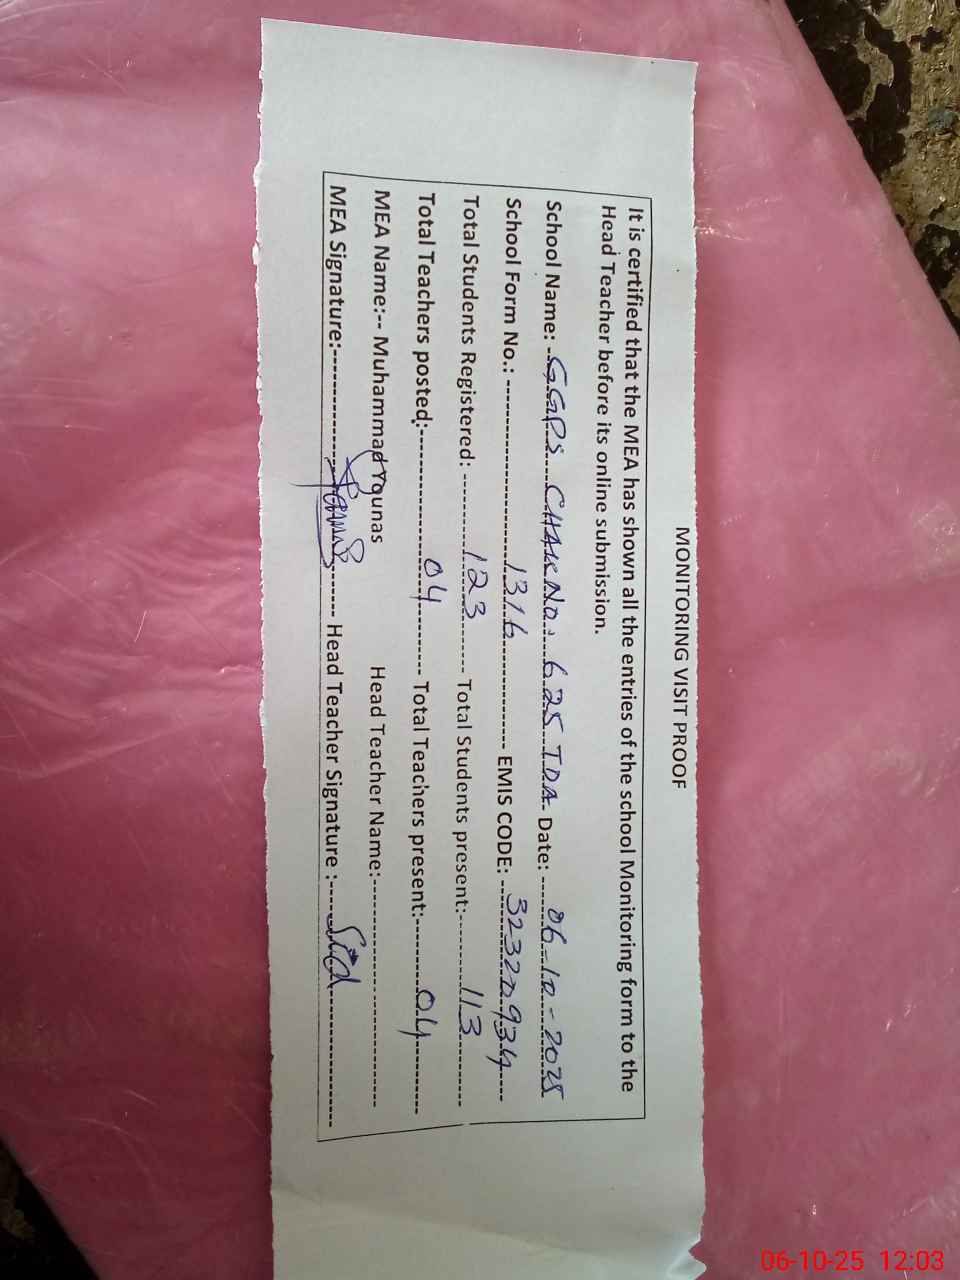 MONITORING VISIT PROOF
It is certified that the MEA has shown all the entries of the school Monitoring form to the
Head Teacher before its online submission.
School Name: GGPS CHAK NO: 625 TDA Date: 06-10-2025
School Form No.: 1316 EMIS CODE: 32320934
Total Students Registered: 123 Total Students present: 113
Total Teachers posted: 04 Total Teachers present: 04
MEA Name:-- Muhammad Younas Head Teacher Name:
MEA Signature: Head Teacher Signature :
06-10-25 12:03